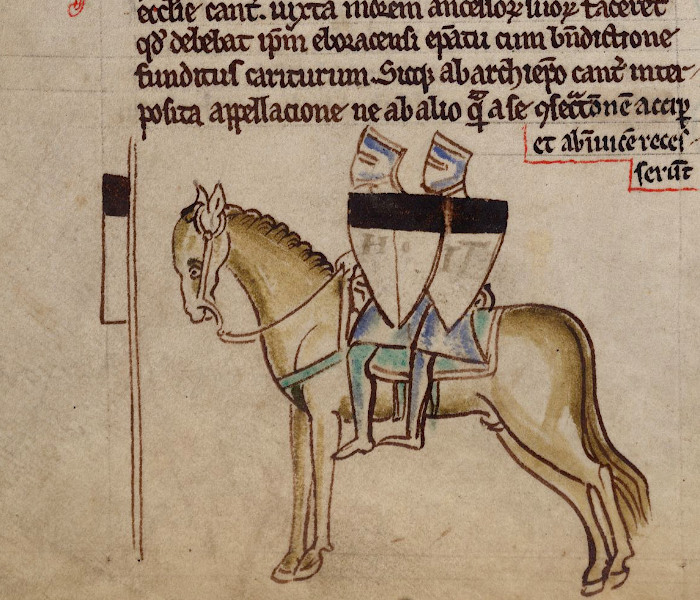 ecclie cant. iuxta morem ancessoꝝ suoꝝ faceret
qđ debebat ip̄m eboracensi ep̄atu cum bn̄dictione
funditus cariturum. Sicqꝫ ab archiep̄o cant̄ inter-
posita appellacione ne ab alio q̄ a se ꝯsec̄tōnē accip̄
et ab īuicē reces-
serūt